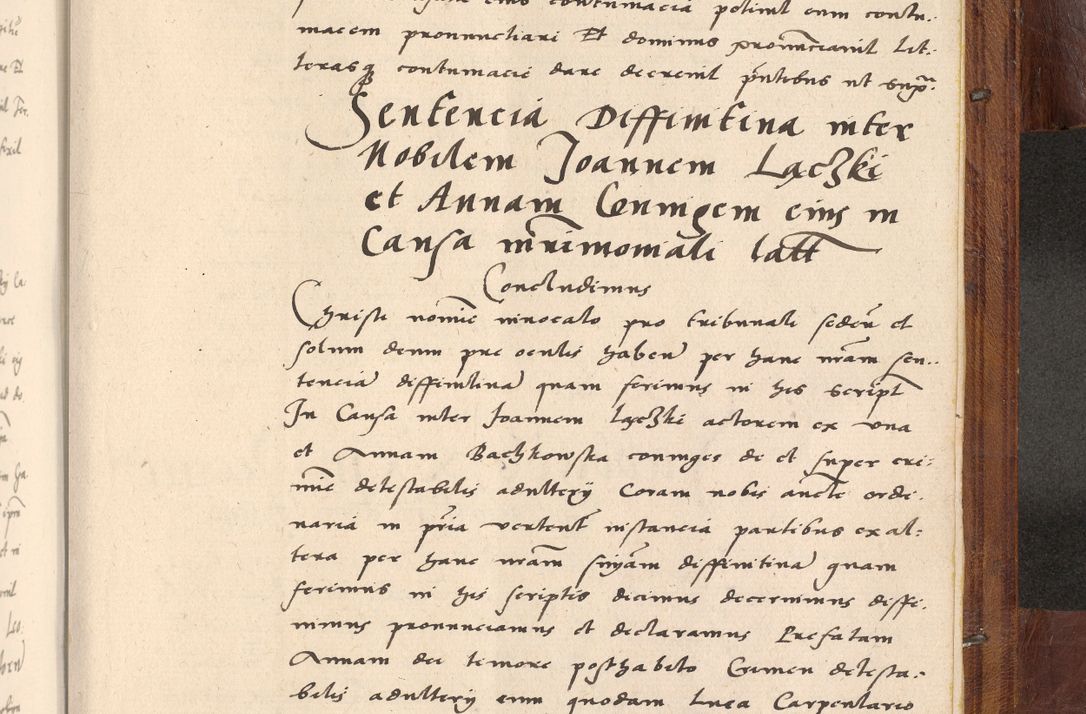 contumacia petiint eum contu-
macem pronunctiari Et dominus pronūnciavit Lit-
terasq contumacie dare decrevit pñtibus ut supra.
Sentencia Diffinitiva inter
Nobilem Joannem Lączki
et Annam Coniugem eius in
Causa mr̄imoniali latt
Concludimus
Christi nomīe invocato pro tribunali sedeñ et
solum deum pre oculis habeñ per hanc nr̄am sen-
tenciā diffinitivā quam ferimus in his script
In Causa inter Joannem Lączki actorem ex una
et Annam Bachkowska coniuges de et super cri-
mīe detestabilis adulterij Coram nobis aucte ordi-
naria in pr̄ia vertent instancia partibus ex al-
tera per hanc nr̄am sn̄iam diffinitivā quam
ferimus in his scriptis dicimus decernimus diffi-
nimus pronunciamus et declaramus Prefatam
Annam dei temore posthabito Crimen detesta-
bilis adulterij cum quodam Luca Carpentario